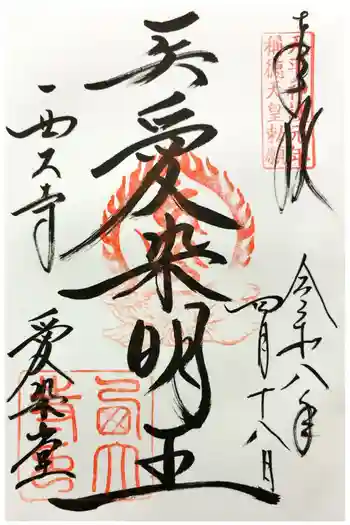 奉拝
稱徳天皇勅願
令和八年
四月十八日
愛染明王
西大寺
愛染堂